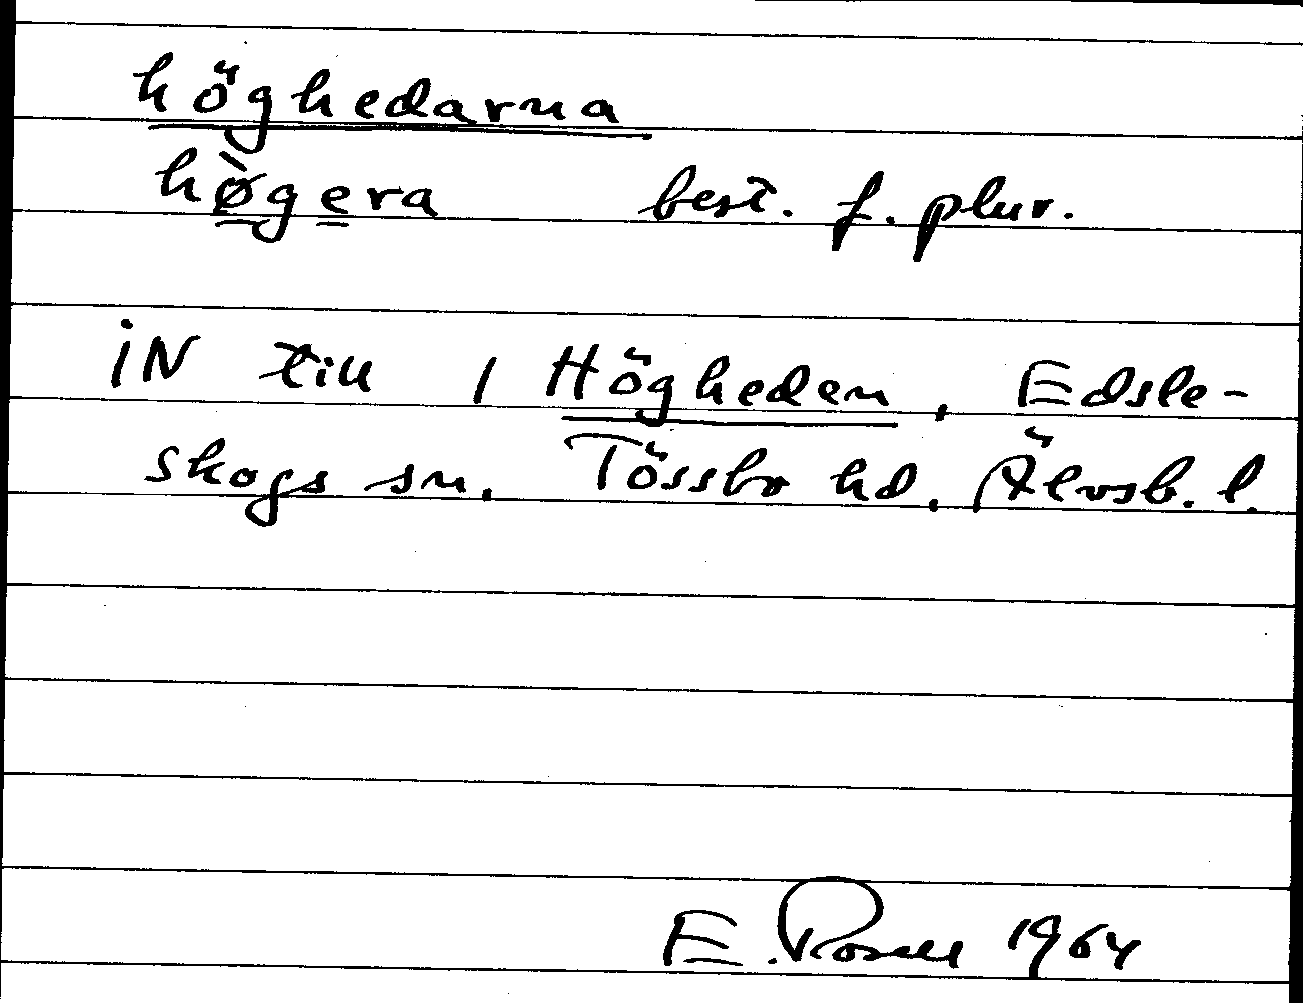 höghedarna
hø̀gera best. f. plur.
iN till 1 Högheden, Edsle-
skogs sn. Tössbo hd. Älvsb. l.
E. Rosell 1964